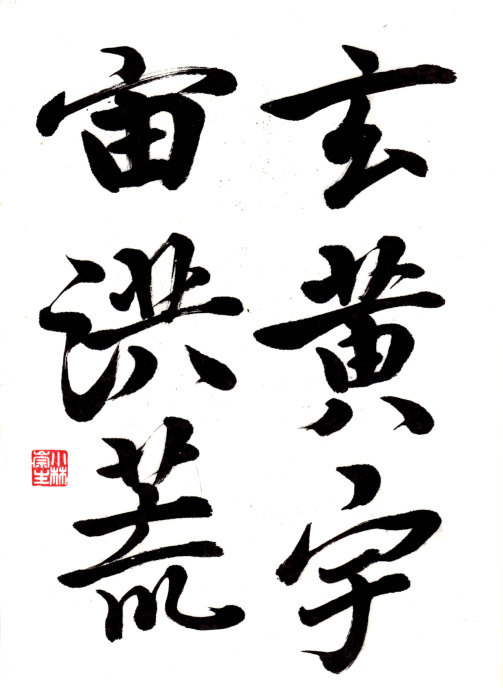 玄黄宇
宙洪荒
小林
崇生